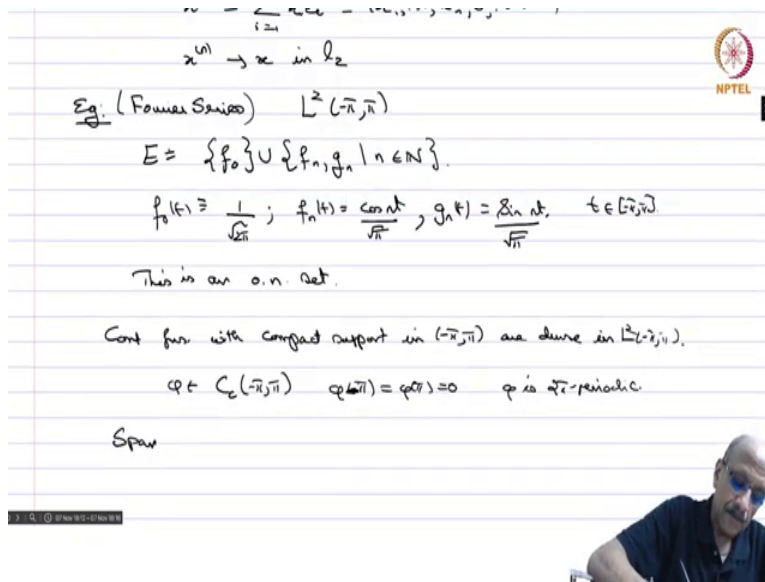 i=1
x⁽ⁿ⁾ → x in l₂
NPTEL
Eg: (Fourier Series) L²(-π,π)
E = {f₀} ∪ {fₙ, gₙ | n ∈ ℕ}.
f₀(t) ≡ 1/√2π ; fₙ(t) = cos nt/√π , gₙ(t) = Sin nt/√π, t ∈ [-π,π].
This is an o.n. set.
Cont fns. with compact support in (-π,π) are dense in L²(-π,π).
φ ∈ C_c(-π,π) φ(-π) = φ(π) = 0 φ is 2π-periodic.
Span
07 Nov 18:12 - 07 Nov 18:16